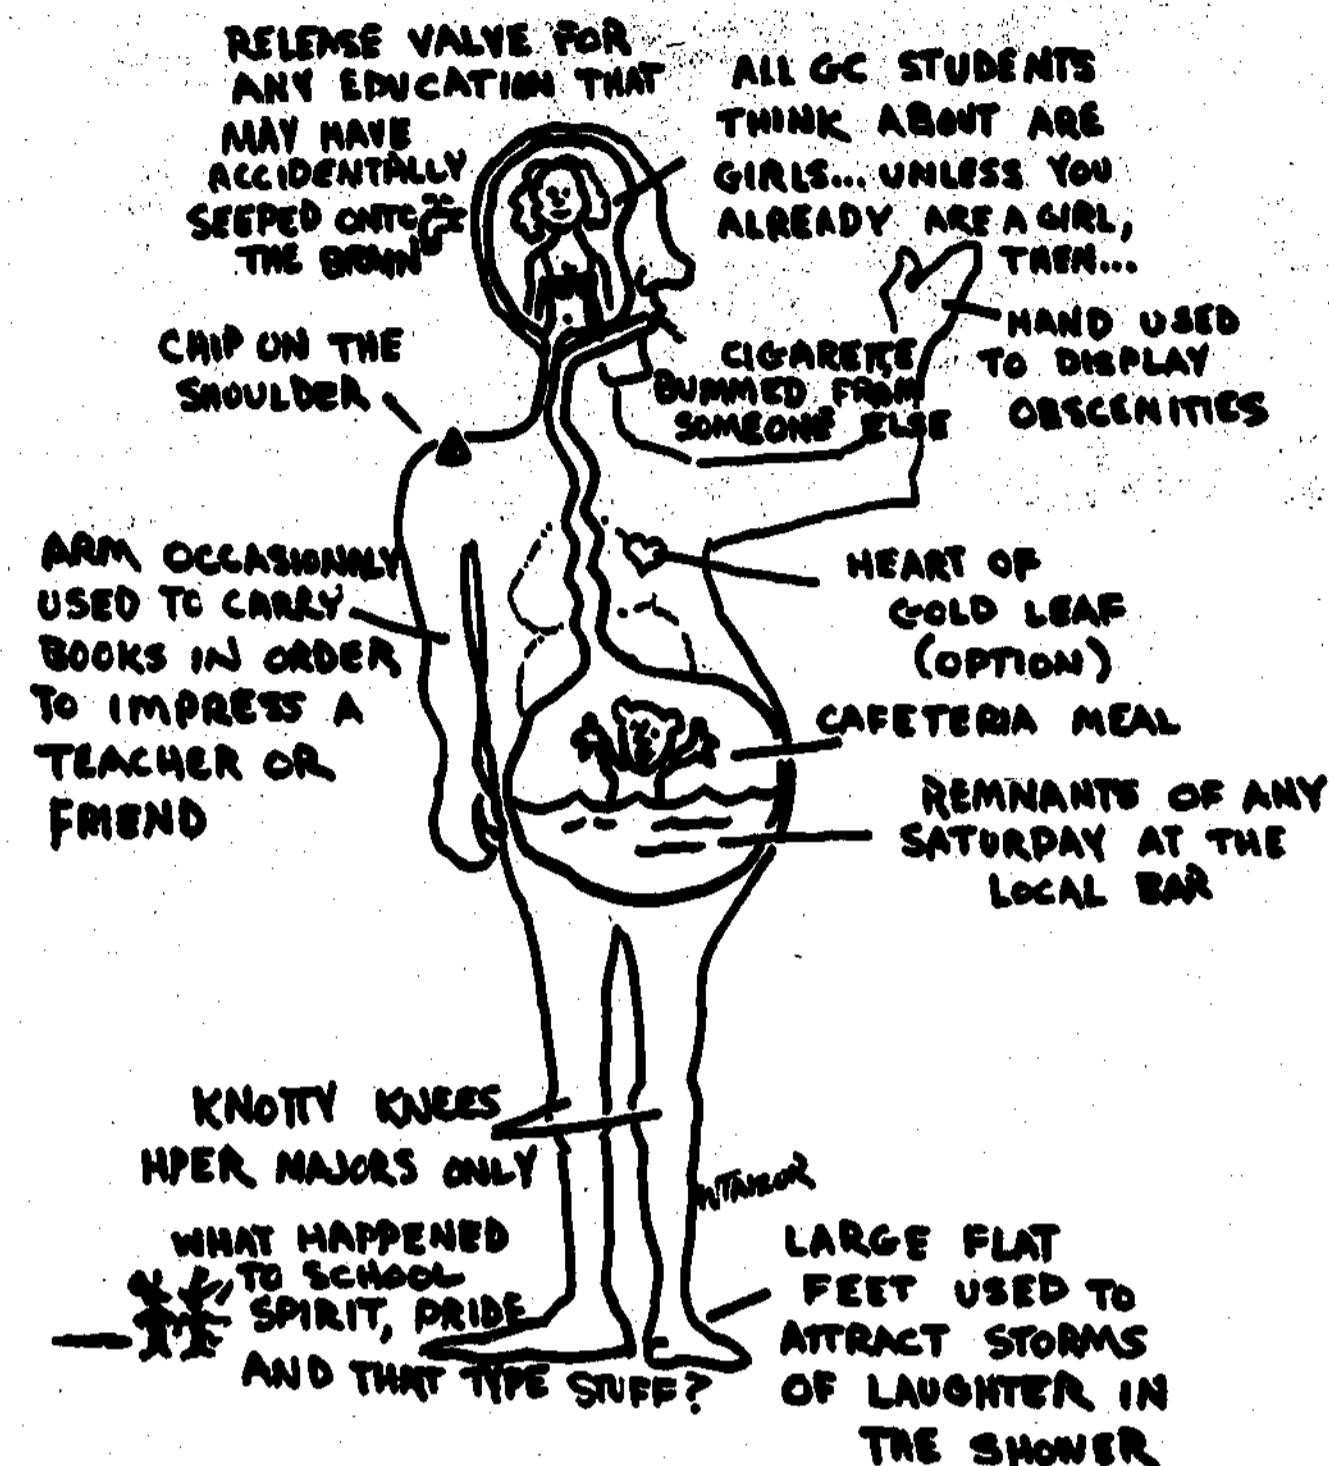 RELEASE VALVE FOR
ANY EDUCATION THAT
MAY HAVE
ACCIDENTALLY
SEEPED ONTO
THE BRAIN
ALL GC STUDENTS
THINK ABOUT ARE
GIRLS... UNLESS YOU
ALREADY ARE A GIRL,
THEN...
CHIP ON THE
SHOULDER
CIGARETTE
BUMMED FROM
SOMEONE ELSE
HAND USED
TO DISPLAY
OBSCENITIES
ARM OCCASIONALLY
USED TO CARRY
BOOKS IN ORDER
TO IMPRESS A
TEACHER OR
FRIEND
HEART OF
GOLD LEAF
(OPTION)
CAFETERIA MEAL
REMNANTS OF ANY
SATURDAY AT THE
LOCAL BAR
KNOTTY KNEES
HPER MAJORS ONLY
WHAT HAPPENED
TO SCHOOL
SPIRIT, PRIDE
AND THAT TYPE STUFF?
LARGE FLAT
FEET USED TO
ATTRACT STORMS
OF LAUGHTER IN
THE SHOWER